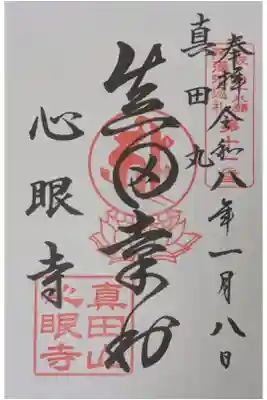 奉拝 令和八年一月八日
真田丸
真田幸村
心眼寺
真田山
心眼寺